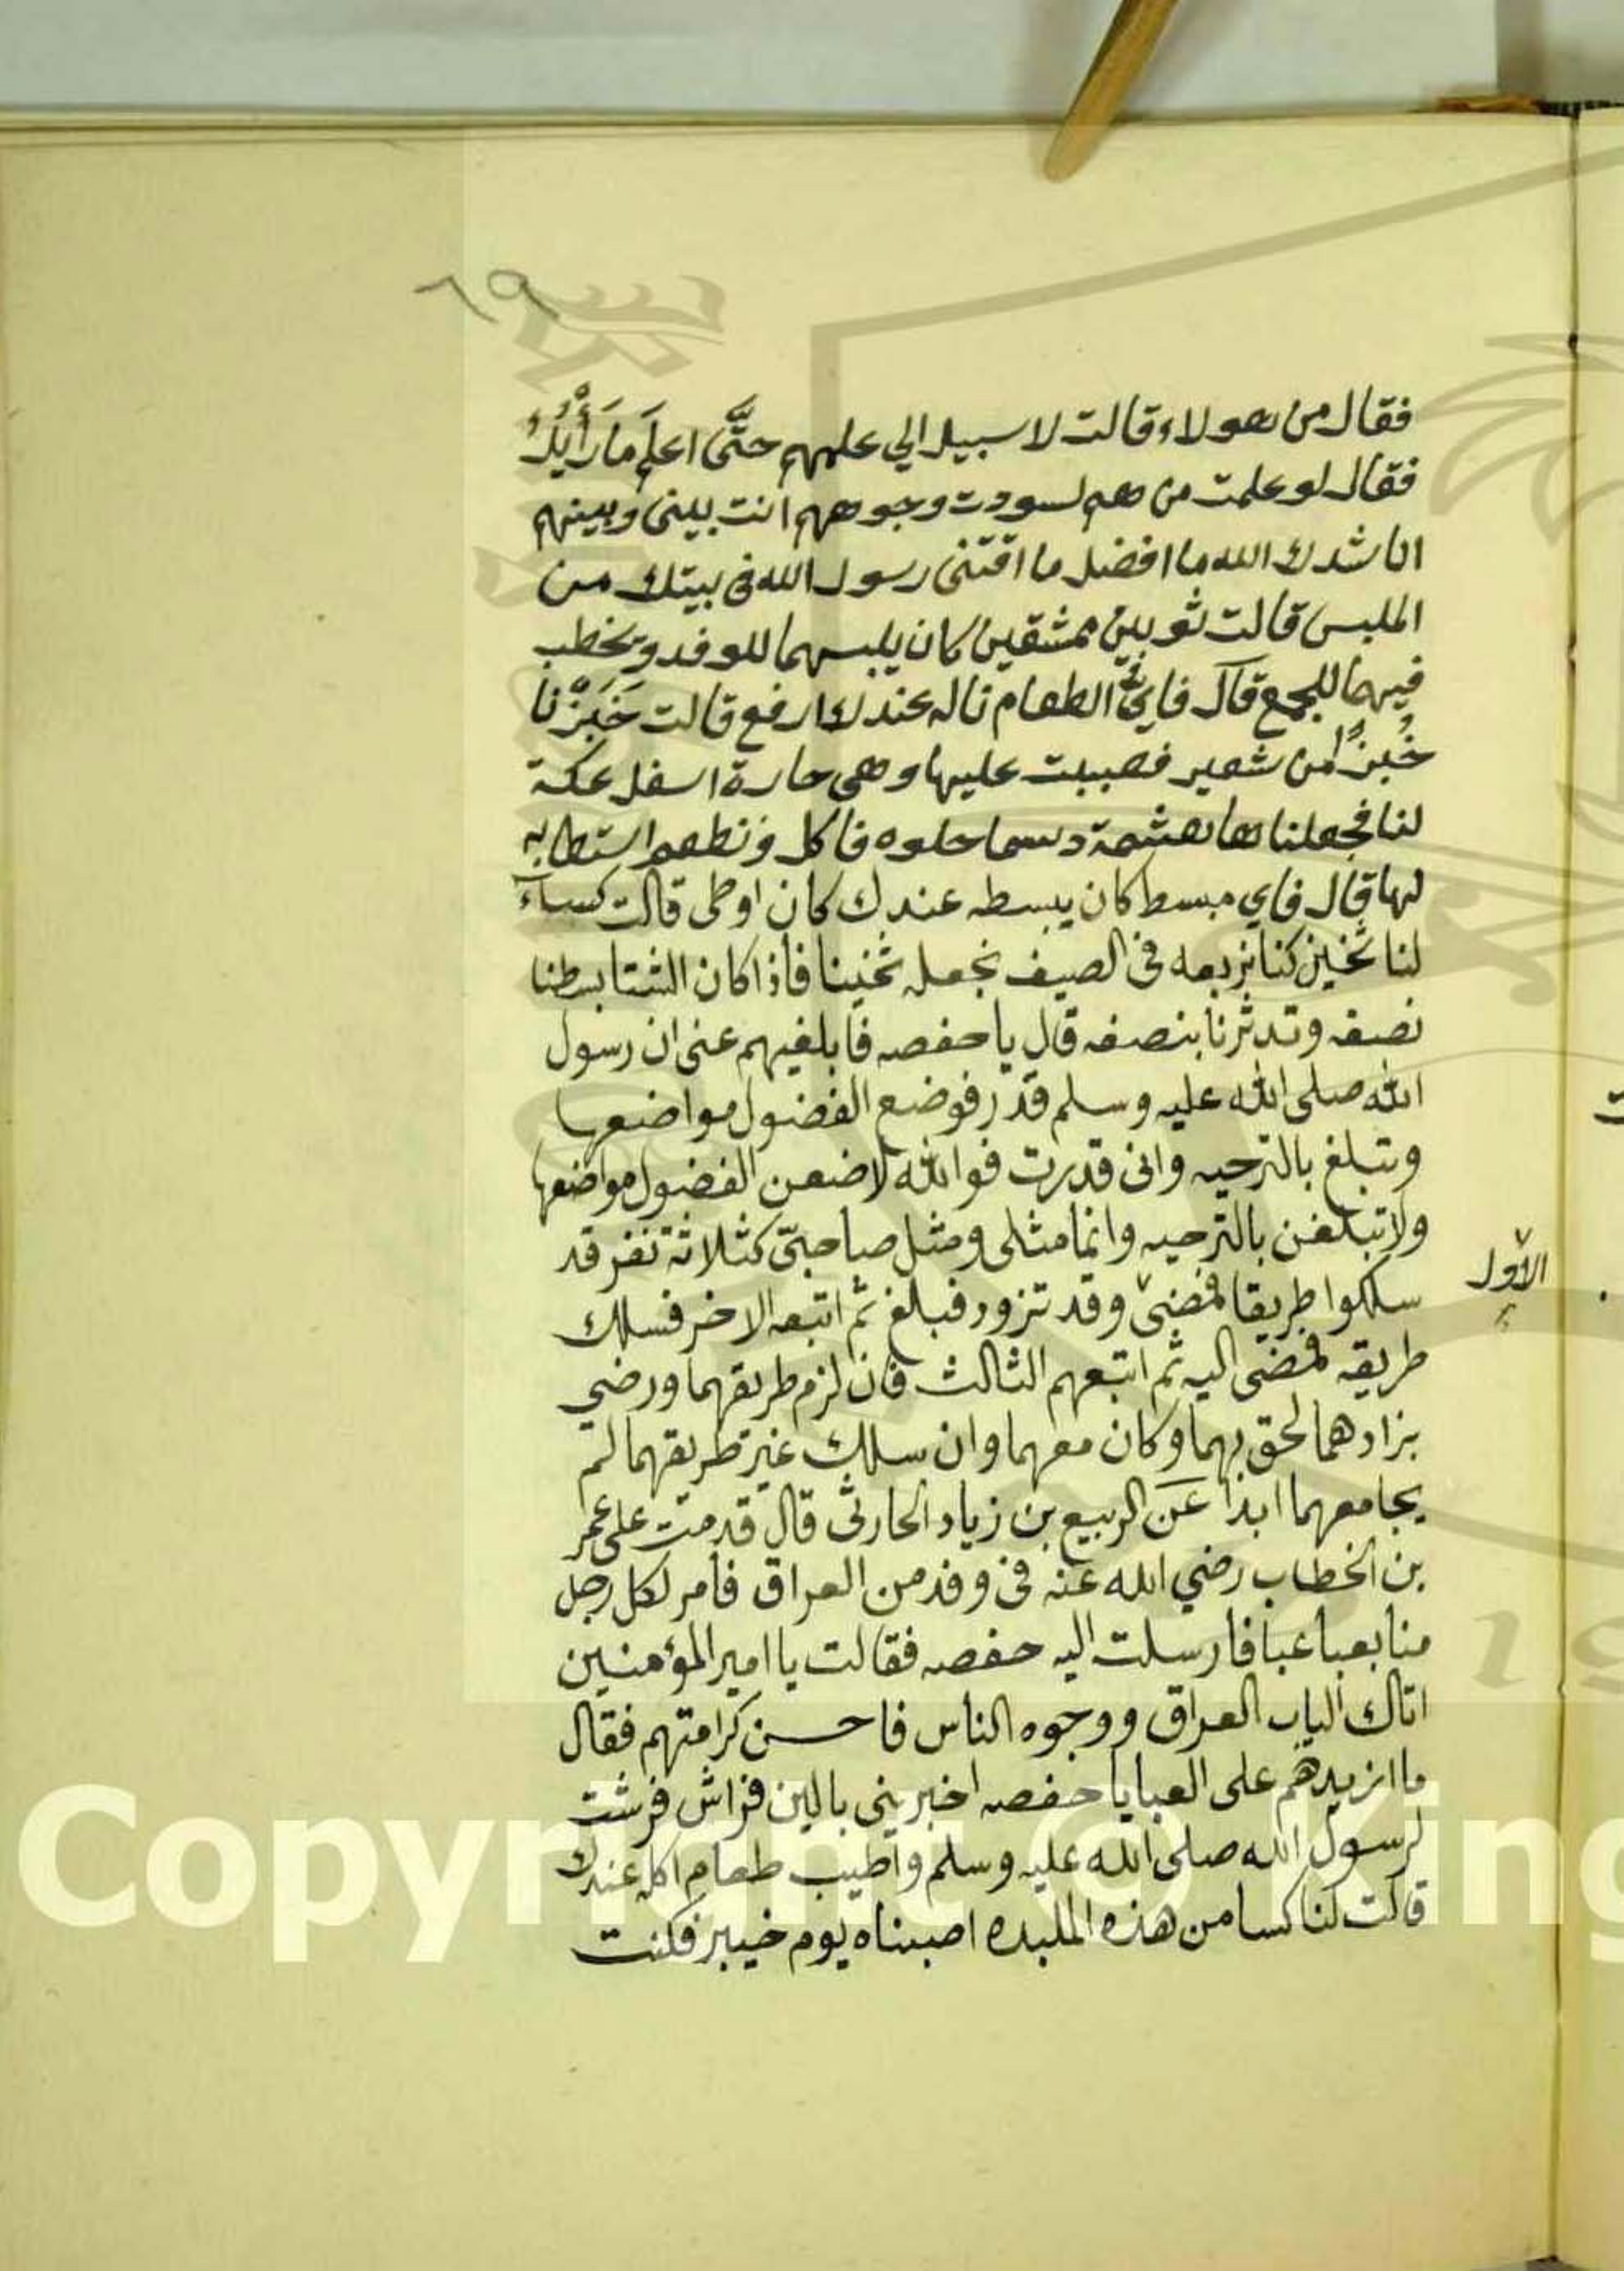 ٦٩
فقال من هولاء قالت لا سبيل الي علمهم حتَّى اعلَم مَا رَأْيُكُ
فقال لو علمت من هم لسودت وجوههم انت بيني وبينهم
اناشدك الله ما افضل ما اقتنى رسول الله فى بيتك من
الملبس قالت ثوبين ممشقين كان يلبسهما للوفد ويخطب
فيهما للجمع قال فاي الطعام ناله عندك ارفع قالت خَبَزْنا
خُبزًا من شعير فصببت عليها وهى حارة اسفل عكة
لنا فجعلناها هشمة دسما حلوه فاكل وتطعم استطابه
لها قال فاي مبسط كان يبسطه عندك كان اوطى قالت كساء
لنا ثخين كنا نربعه فى الصيف نجعله ثخينا فاذا كان الشتا بسطنا
نصفه وتدثرنا بنصفه قال يا حفصه فابلغيهم عنى ان رسول
الله صلى الله عليه وسلم قدر فوضع الفضول مواضعها
وتبلغ بالترحيه وانى قدرت فوالله لاضعن الفضول مواضعها
ولا تبلغن بالترحيه وانما مثلى ومثل صاحبىّ كثلاثة نفر قد
سلكوا طريقا فمضى وقد تزود فبلغ ثم اتبعه الاخر فسلك
الاول
طريقه فمضى اليه ثم اتبعهم الثالث فان لزم طريقهما ورضي
بزادهما لحق بهما وكان معهما وان سلك غير طريقهما لم
يجامعهما ابدا عَن الربيع بن زياد الحارثى قال قدمت على عمر
بن الخطاب رضي الله عنه فى وفد من العراق فامر لكل رجل
منا بعبا عبا فارسلت اليه حفصه فقالت يا امير المؤمنين
اتاك الباب العراق ووجوه الناس فاحسن كرامتهم فقال
ما ازيدهم على العبا يا حفصه اخبرينى بالين فراش فرشت
لرسول الله صلى الله عليه وسلم واطيب طعام اكله عندك
قالت لنا كسا من هذه الملبده اصبناه يوم خيبر فكنت
Copyright © King